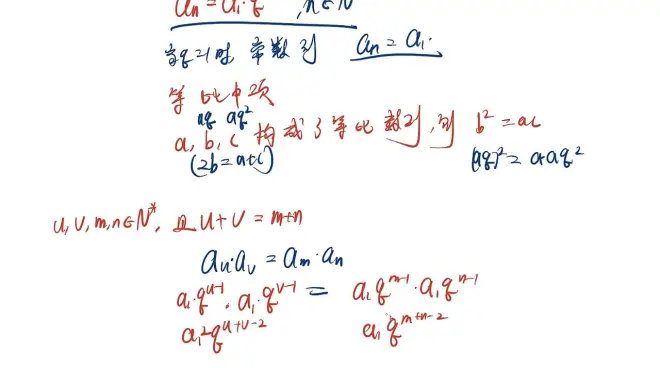 aₙ = a₁·q , n∈N
当q=1时 常数列 aₙ = a₁.
等比中项
aq aq²
a, b, c 构成了等比数列, 则 b² = ac
(2b = a+c) (aq)² = a·aq²
u, v, m, n∈N*, 且 u+v = m+n
aᵤ·aᵥ = aₘ·aₙ
a₁·q^{u-1}·a₁·q^{v-1} = a₁q^{m-1}·a₁q^{n-1}
a₁²q^{u+v-2} a₁q^{m+n-2}